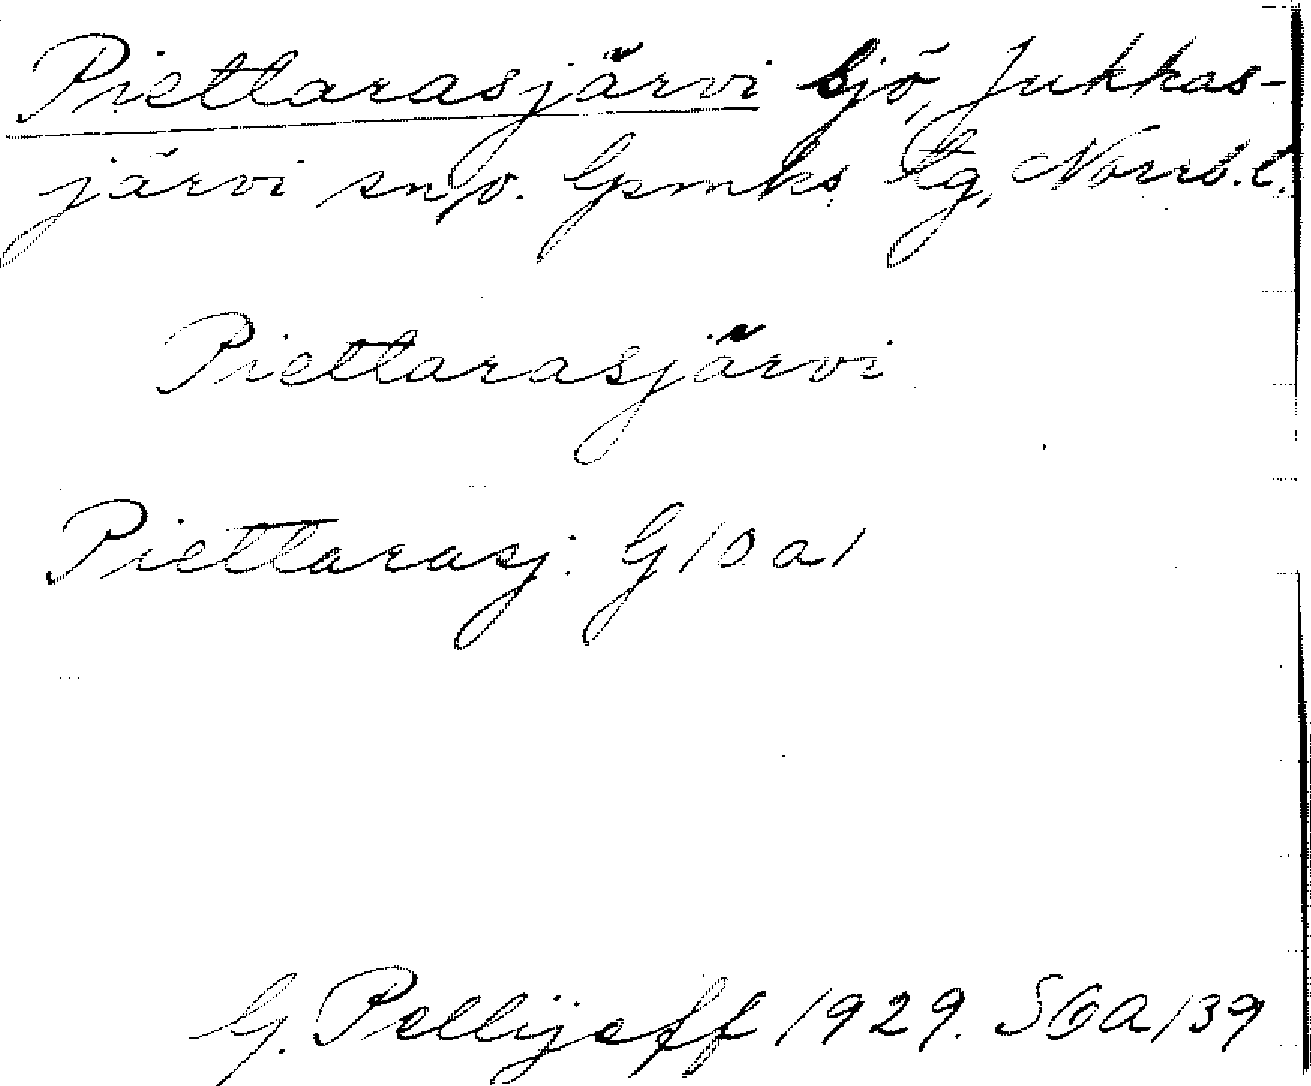 Piettarasjärvi sjö, Jukkas-
järvi sn, o. Gpmks tg, Norrb. l.
Piettarasjärvi
Piettarasj: G 10 a 1
G. Pellijeff 1929. SGA 139